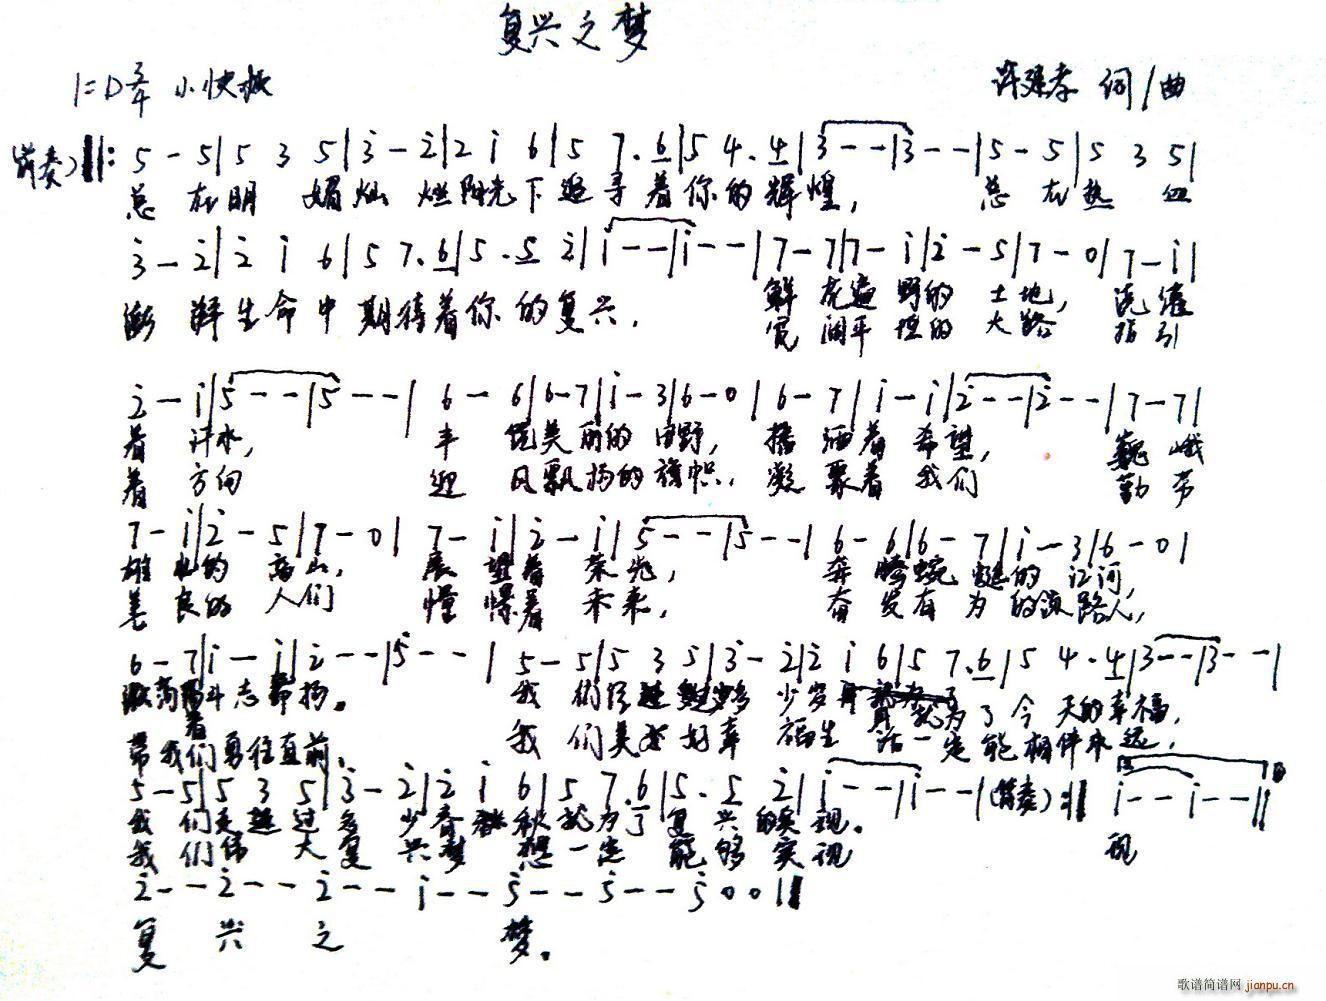 复兴之梦
1=D 3/4 小快板
许建孝 词/曲
(前奏)‖: 5 - 5|5 3 5|3̇ - 2̇|2̇ i 6|5 7.6|5 4.4|3 - -|3 - -|5 - 5|5 3 5|
总 在明 媚灿 烂阳光下追寻着你的辉煌, 总 在热 血
3̇ - 2̇|2̇ i 6|5 7.6|5.5 2̇|i - -|i - -|7 - 7|7 - i|2̇ - 5|7 - 0|7 - i|
澎 湃生命中期待着你的复兴. 鲜 花遍 野的 土地, 浇灌
宽 阔平 坦的 大路 指引
2̇ - i|5 - -|5 - -|6 - 6|6 - 7|i - 3|6 - 0|6 - 7|i - i|2̇ - -|2̇ - -|7 - 7|
着 汗水, 丰 饶美丽的 田野, 播 洒着 希望, 巍峨
着 方向 迎 风飘扬的旗帜. 凝 聚着 我们 勤劳
7 - i|2̇ - 5|7 - 0|7 - i|2̇ - i|5 - -|5 - -|6 - 6|6 - 7|i - 3|6 - 0|
雄壮的 高山, 展 望着 荣光, 奔 腾蜿蜒的 江河,
善良的 人们 憧 憬着 未来, 奋 发有为的领路人,
6 - 7|i - i|2̇ - -|5 - -|5 - 5|5 3 5|3̇ - 2̇|2̇ i 6|5 7.6|5 4.4|3 - -|3 - -|
激荡着斗志昂扬。 我 们 多 少岁月 就为了今 天的幸福,
带我们勇往直前. 我 们美好幸 福生 活一定能相伴永远,
5 - 5|5 3 5|3̇ - 2̇|2̇ i 6|5 7.6|5.5 2̇|i - -|i - -|(前奏):‖ i - - i - -‖
我 们走 过多 少春 秋就为了复兴的实现。
我 们伟 大复 兴梦 想一定能够实现 现
2̇ - - 2̇ - - 2̇ - - i - - 5̇ - - 5̇ - - 5̇ 0 0‖
复 兴 之 梦。
歌谱简谱网 jianpu.cn